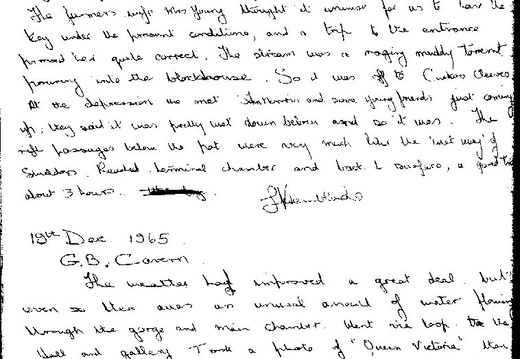 The farmers wife Mrs Young thought it unwise for us to have the
key under the present conditions, and a trip to the entrance
proved her quite correct. The stream was a raging muddy torrent
pouring into the blockhouse. So it was off to Cuckoo Cleeves.
At the depression we met and some young friends just coming
up, they said it was pretty wet down below and so it was. The
right passages below the pot were very much like the 'wet way' of
Swildons. Reached terminal chamber and back to surface, a good trip
about 3 hours.
19th Dec 1965.
G.B. Cavern.
The weather had improved a great deal but
even so there was an unusual amount of water flowing
through the gorge and main chamber. Went via loop to the
and gallery. Took a photo of "Queen Victoria" then